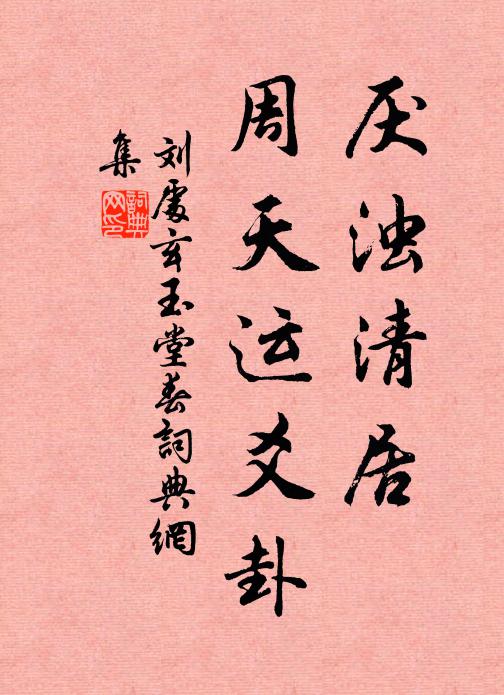 厌浊清居
周天运爻卦
刘处玄玉堂春詞典網
集
詞典
网印